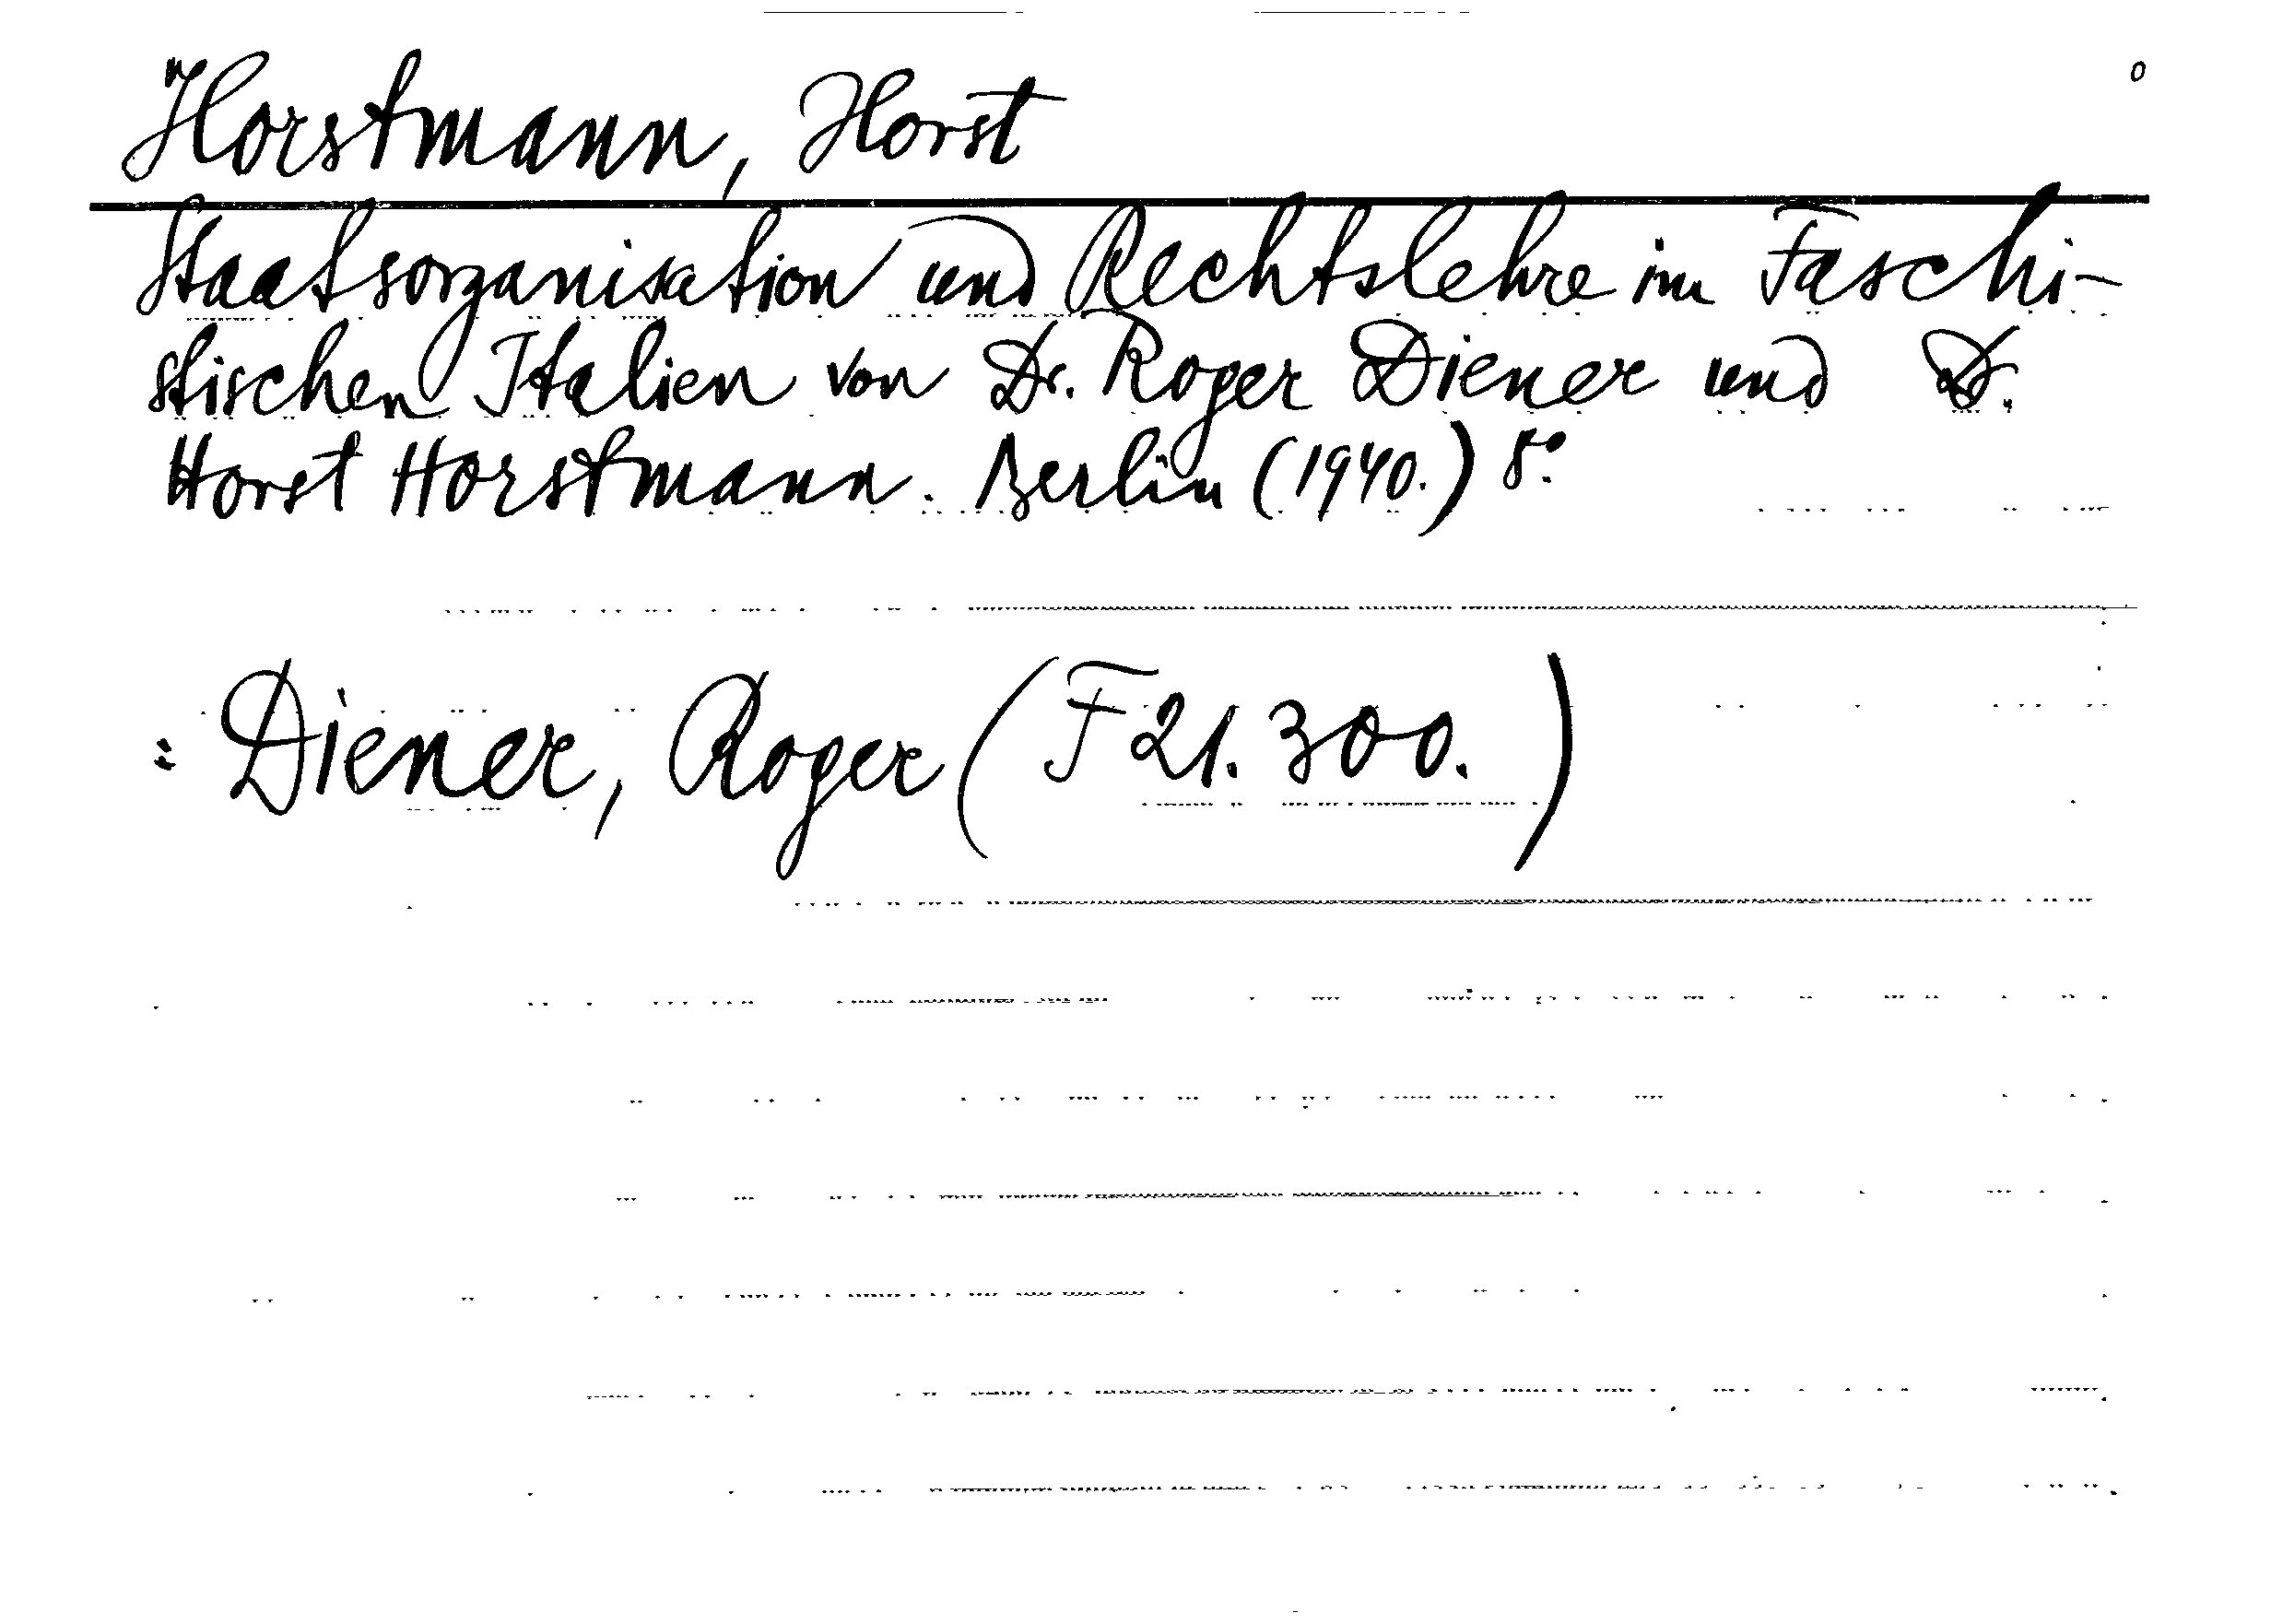 Horstmann, Horst
o
Staatsorganisation und Rechtslehre im Faschi-
stischen Italien von Dr. Roger Diener und Dr.
Horst Horstmann. Berlin (1940.) 8°.
: Diener, Roger (F 21.300.)